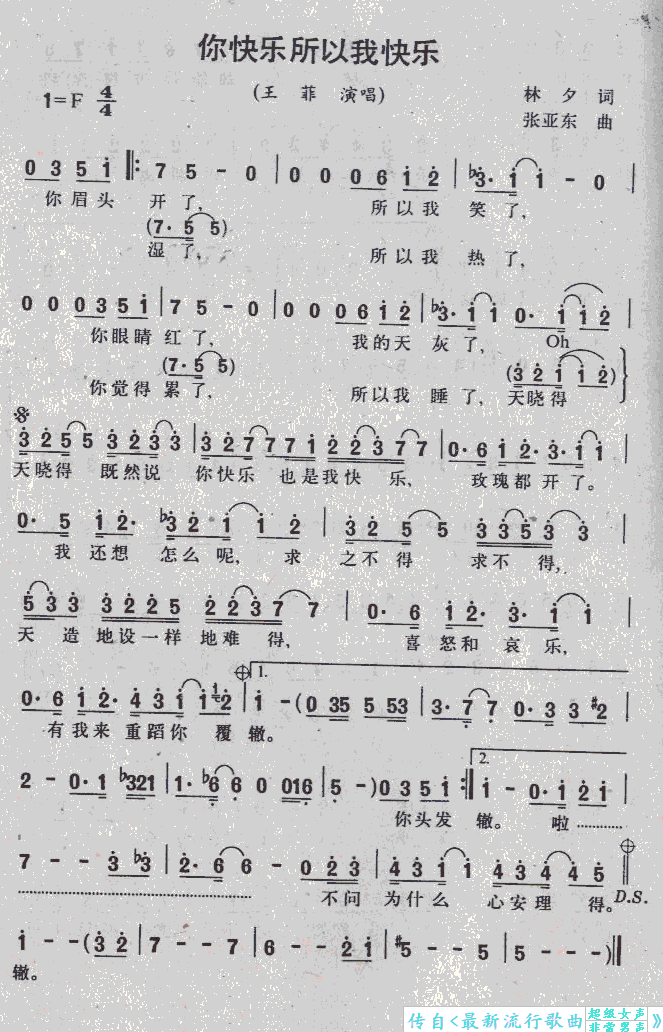 你快乐所以我快乐
(王 菲 演唱)
1=F 4/4
林 夕 词
张亚东 曲
0 3 5 i ‖: 7 5 - 0 | 0 0 0 6 i 2 | b3· i i - 0 |
你眉头 开了, 所以我 笑了,
(7· 5 5)
湿了, 所以我 热了,
0 0 0 3 5 i | 7 5 - 0 | 0 0 0 6 i 2 | b3· i i 0· i i 2 |
你眼睛 红了, 我的天 灰了, Oh
(7· 5 5) (3 2 i i 2)
你觉得 累了, 所以我 睡了, 天晓得
3 2 5 5 3 2 3 3 | 3 2 7 7 7 7 i 2 2 3 7 7 | 0· 6 i 2· 3· i i |
天晓得 既然说 你快乐 也是我快 乐, 玫瑰都开了。
0· 5 i 2· b3 2 i i 2 | 3 2 5 5 3 3 5 3 3 |
我 还想 怎么呢, 求 之不得 求不得,
5 3 3 3 2 2 5 2 2 3 7 7 | 0· 6 i 2· 3· i i |
天 造 地设一样 地难 得, 喜 怒和 哀乐,
1.
0· 6 i 2· 4 3 i i 2 | i - (0 35 5 53 | 3· 7 7 0· 3 3 #2 |
有我来 重蹈你 覆 辙。
2.
2 - 0· 1 b321 | 1· b6 6 0 016 | 5 - ) 0 3 5 i :‖ i - 0· i 2 i |
你头发 辙。 啦…………
7 - - 3 b3 | 2· 6 6 - 0 2 3 | 4 3 i i 4 3 4 4 5 ‖
………………………… 不问 为什么 心安理 得。D.S.
i - - (3 2 | 7 - - 7 | 6 - - 2 i | #5 - - 5 | 5 - - - )‖
辙。
传自<最新流行歌曲 超级女声 非常男声》